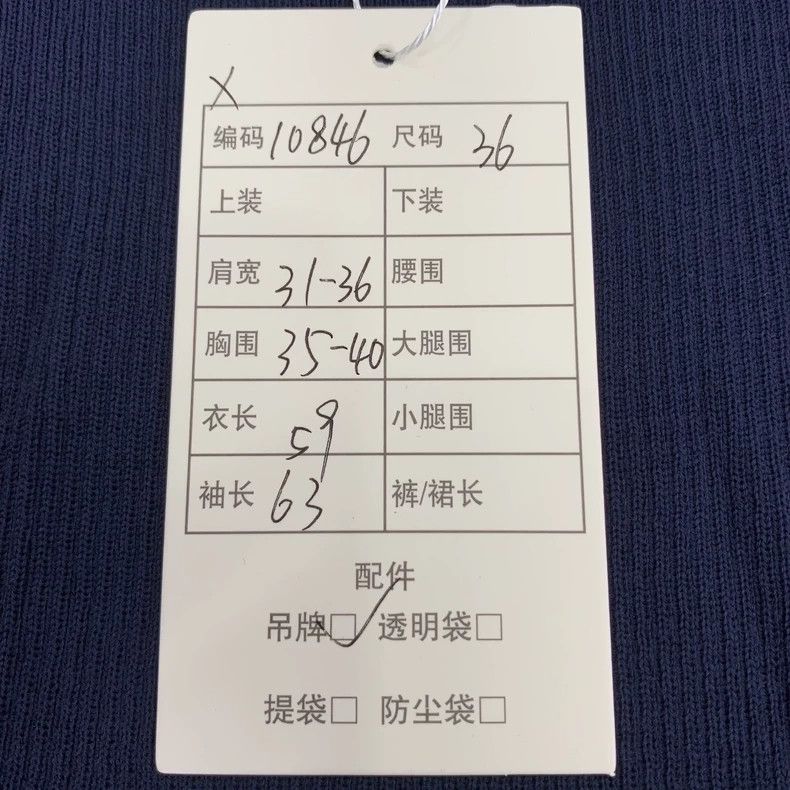 X
编码 10846 尺码 36
上装 下装
肩宽 31-36 腰围
胸围 35-40 大腿围
衣长 59 小腿围
袖长 63 裤/裙长
配件
吊牌☑ 透明袋□
提袋□ 防尘袋□